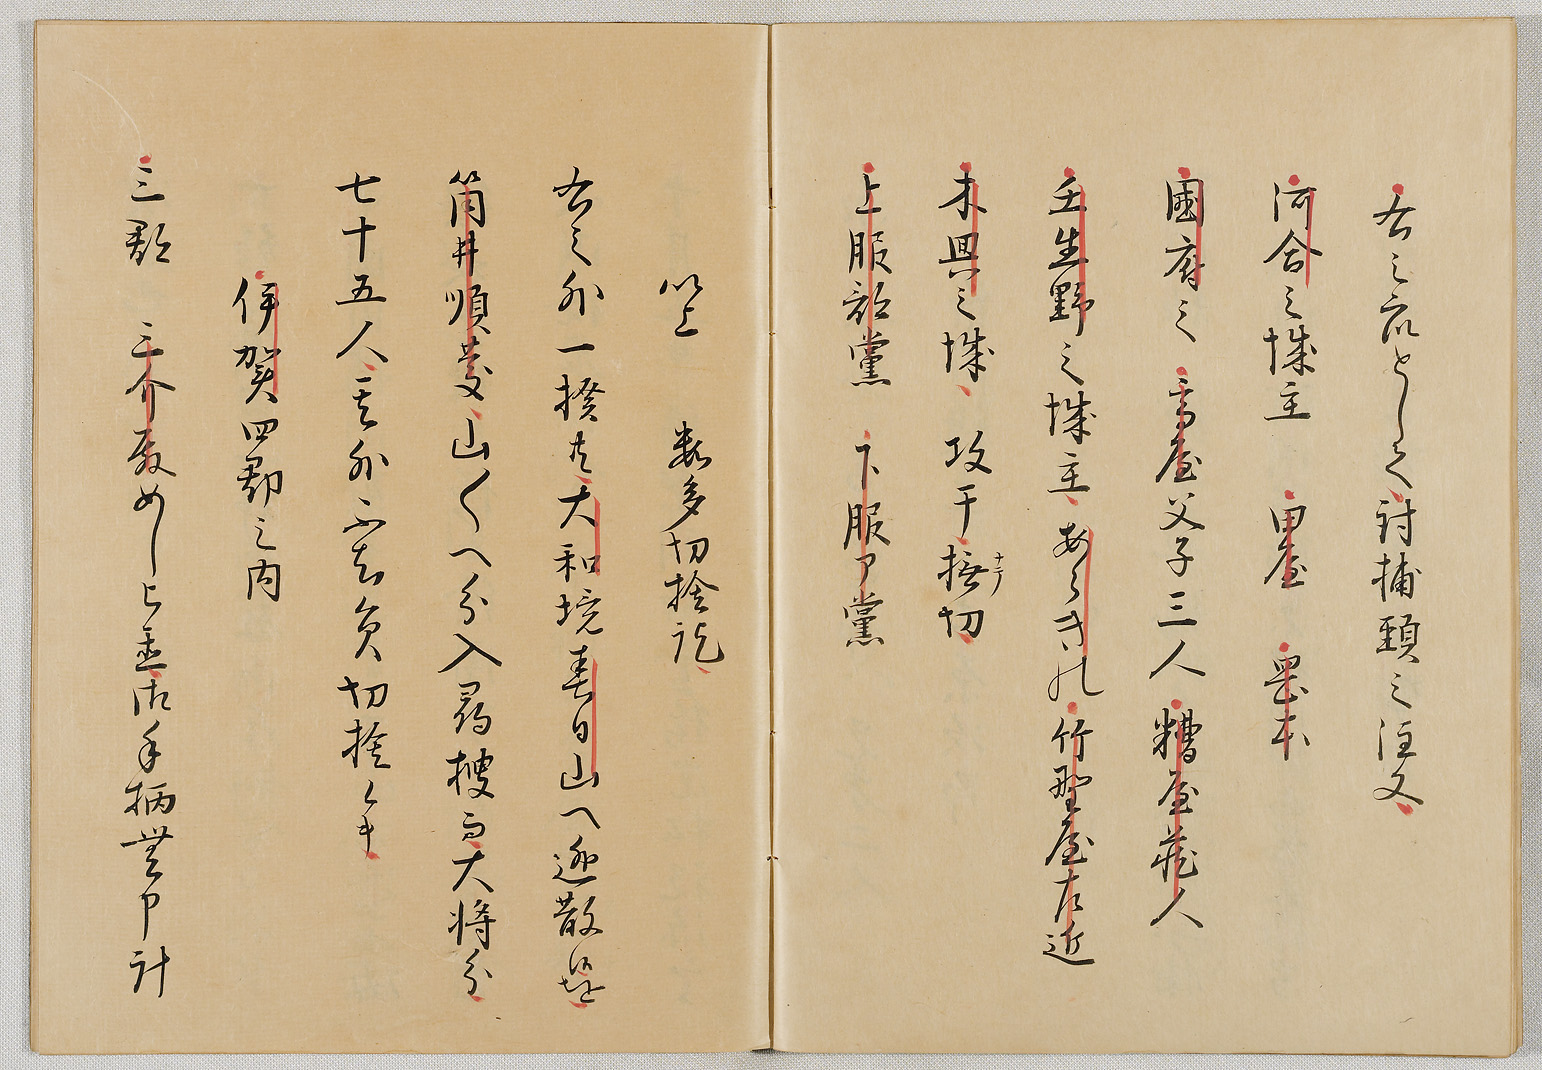 右之衆として討捕頸之注文
河合之城主 田屋 岡本
國府之 高屋父子三人 糟屋蔵人
壬生野之城主 あらきの 竹野屋左近
木興之城 攻干撫切
ナテ
上服部黨 下服部黨
以上 数多切捨訖
右之外一揆共大和境春日山へ迯散候を
筒井順慶山〱へ分入尋捜而大将分
七十五人其外不知員切捨候キ
伊賀四郡之内
三郡 三介殿めし上御手柄無申計